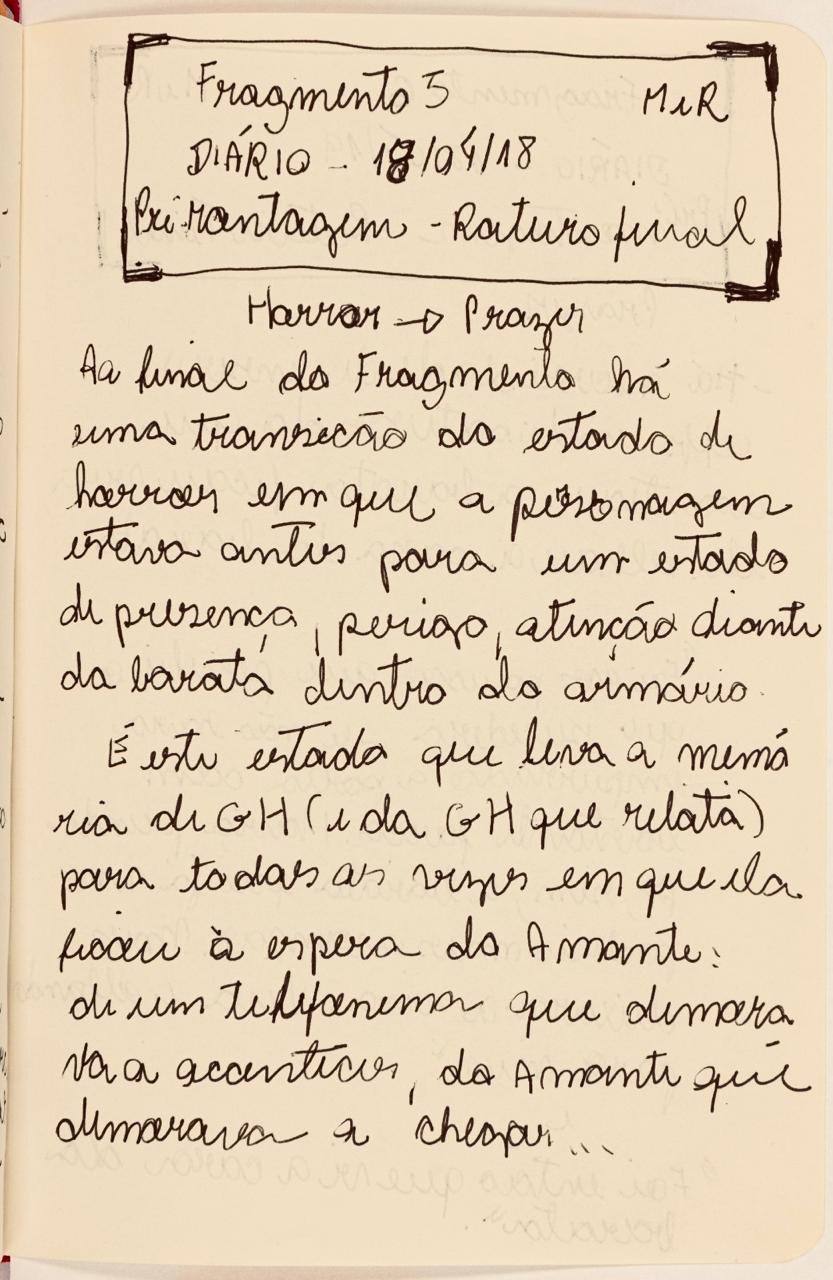 Fragmento 5 MeR
DIÁRIO - 18/04/18
Pré-montagem - Roteiro final
Horror → Prazer
Ao final do Fragmento há
uma transição do estado de
horror em que a personagem
estava antes para um estado
de presença, perigo, atenção diante
da barata dentro do armário.
É este estado que leva a memó
ria de GH (e da GH que relata)
para todas as vezes em que ela
ficou à espera do Amante:
de um telefonema que demora
va a acontecer, do Amante que
demorava a chegar...